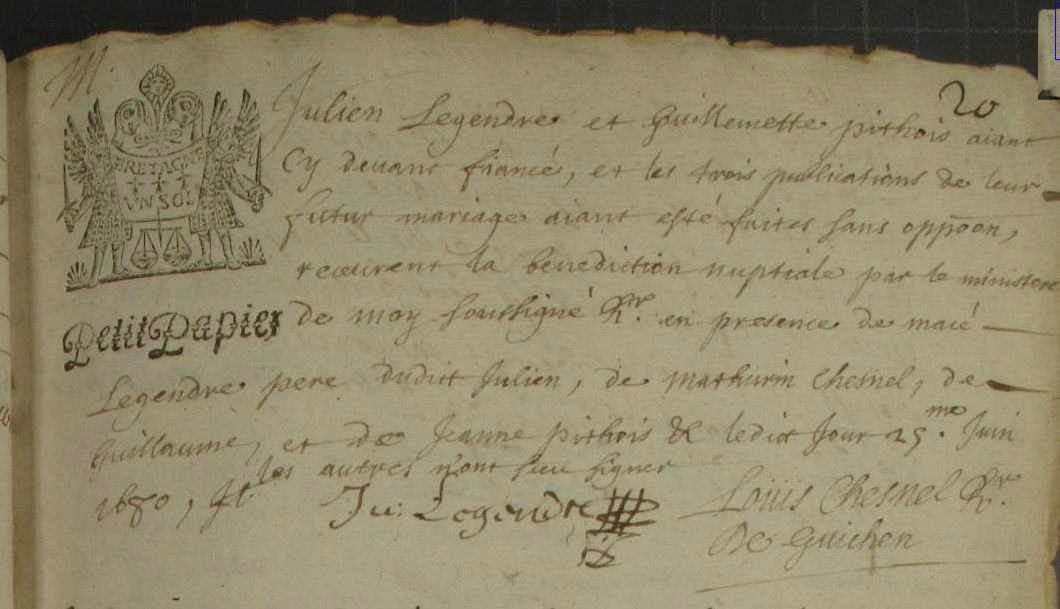 M.
20
BRETAGNE
VN SOL
Petit Papier
Julien Legendre et Guillemette pithois aiant
Cy devant fiancé, et les trois publications de leur
futur mariage aiant esté faites sans oppoon,
receurent la benediction nuptiale par le ministere
de moy soussigné Rr. en presence de macé
Legendre pere dudict Julien, de Mathurin Chesnel, de
Guillaume, et de Jeanne pithois & ledict Jour 25.me Juin
1680, les autres n'ont sceu signer
Ju: Legendre
Louis Chesnel Rr.
De Guichen